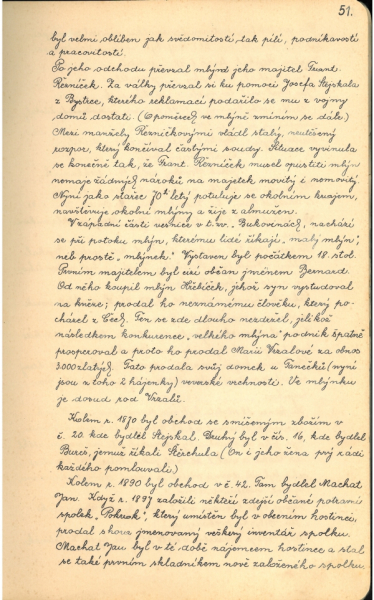 51.
byl velmi oblíben jak svědomitostí, tak pílí, podnikavostí
a pracovitostí.
Po jeho odchodu převzal mlýn jeho majitel Frant.
Řezníček. Za války převzal si ku pomoci Josefa Stejskala
z Bystrce, kterého reklamací podařilo se mu z vojny
domů dostati. (O poměrech ve mlýně zmíním se dále)
Mezi manžely Řezníčkovými vládl stálý, neutěšený
rozpor, který končíval častými soudy. Situace vyvinula
se konečně tak, že Frant. Řezníček musel opustiti mlýn
nemaje žádných nároků na majetek movitý i nemovitý.
Nyní jako stařec 70ti letý potuluje se okolním krajem,
navštěvuje okolní mlýny a žije z almužen.
V západní části vesnice v t. zv. "Bukovenách, nachází
se při potoku mlýn, kterému lidé říkají, malý mlýn",
neb prostě "mlýnek." Vystaven byl počátkem 18 stol.
Prvním majitelem byl cizí občan jménem Bernard.
Od něho koupil mlýn Hřebíček, jehož syn vystudoval
na kněze; prodal ho neznámému člověku, který po-
cházel z Čech. Ten se zde dlouho nezdržel, jelikož
následkem konkurence "velkého mlýna" podnik špatně
prosperoval a proto ho prodal Marii Vizalové za obnos
3000 zlatých. Tato prodala svůj domek u Panečků (nyní
jsou z toho 2 hájenky) veverské vrchnosti. Ve mlýnku
je dosud rod Vizalů.
Kolem r. 1870 byl obchod se smíšeným zbožím v
č. 20. kde bydlel Stejskal. Druhý byl v čís. 16, kde bydlel
Bureš, jemuž říkali Škrchula (On i jeho žena prý rádi
každého pomlouvali)
Kolem r. 1890 byl obchod v č. 42. Tam bydlel Machat
Jan. Když r. 1897 založili někteří zdejší občané potravní
spolek "Pokrok", který umístěn byl v obecním hostinci,
prodal shora jmenovaný veškerý inventář spolku.
Machat Jan byl v té době nájemcem hostince a stal
se také prvním skladníkem nově založeného spolku.